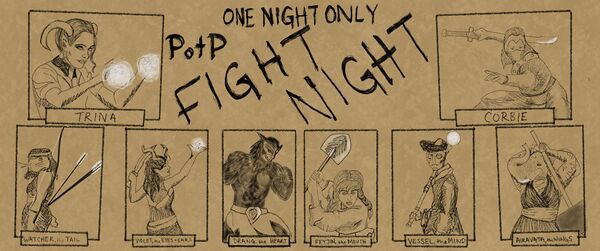 ONE NIGHT ONLY
PotP
FIGHT
NIGHT
TRINA
CORBIE
WATCHER, the TAIL
VOLET, the EYES + EARS
DRANG, the HEART
FEYJIN, the MOUTH
VESSEL, the MIND
AIRAVATA, the WINGS